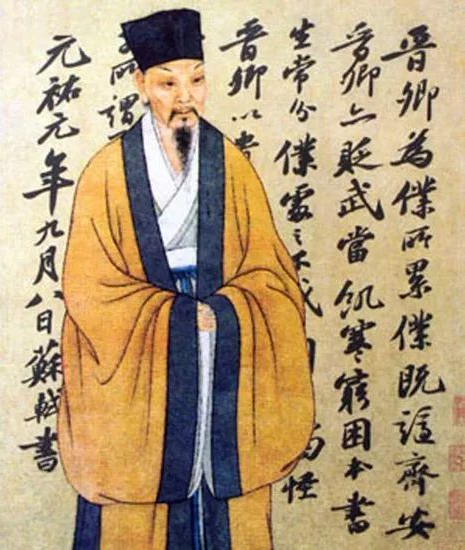 晉卿為僕所累僕既謫齊安
晉卿亦貶武當飢寒窮困本書
生常分僕處之不 怪
晉卿以
所謂
元祐元年九月八日蘇軾書